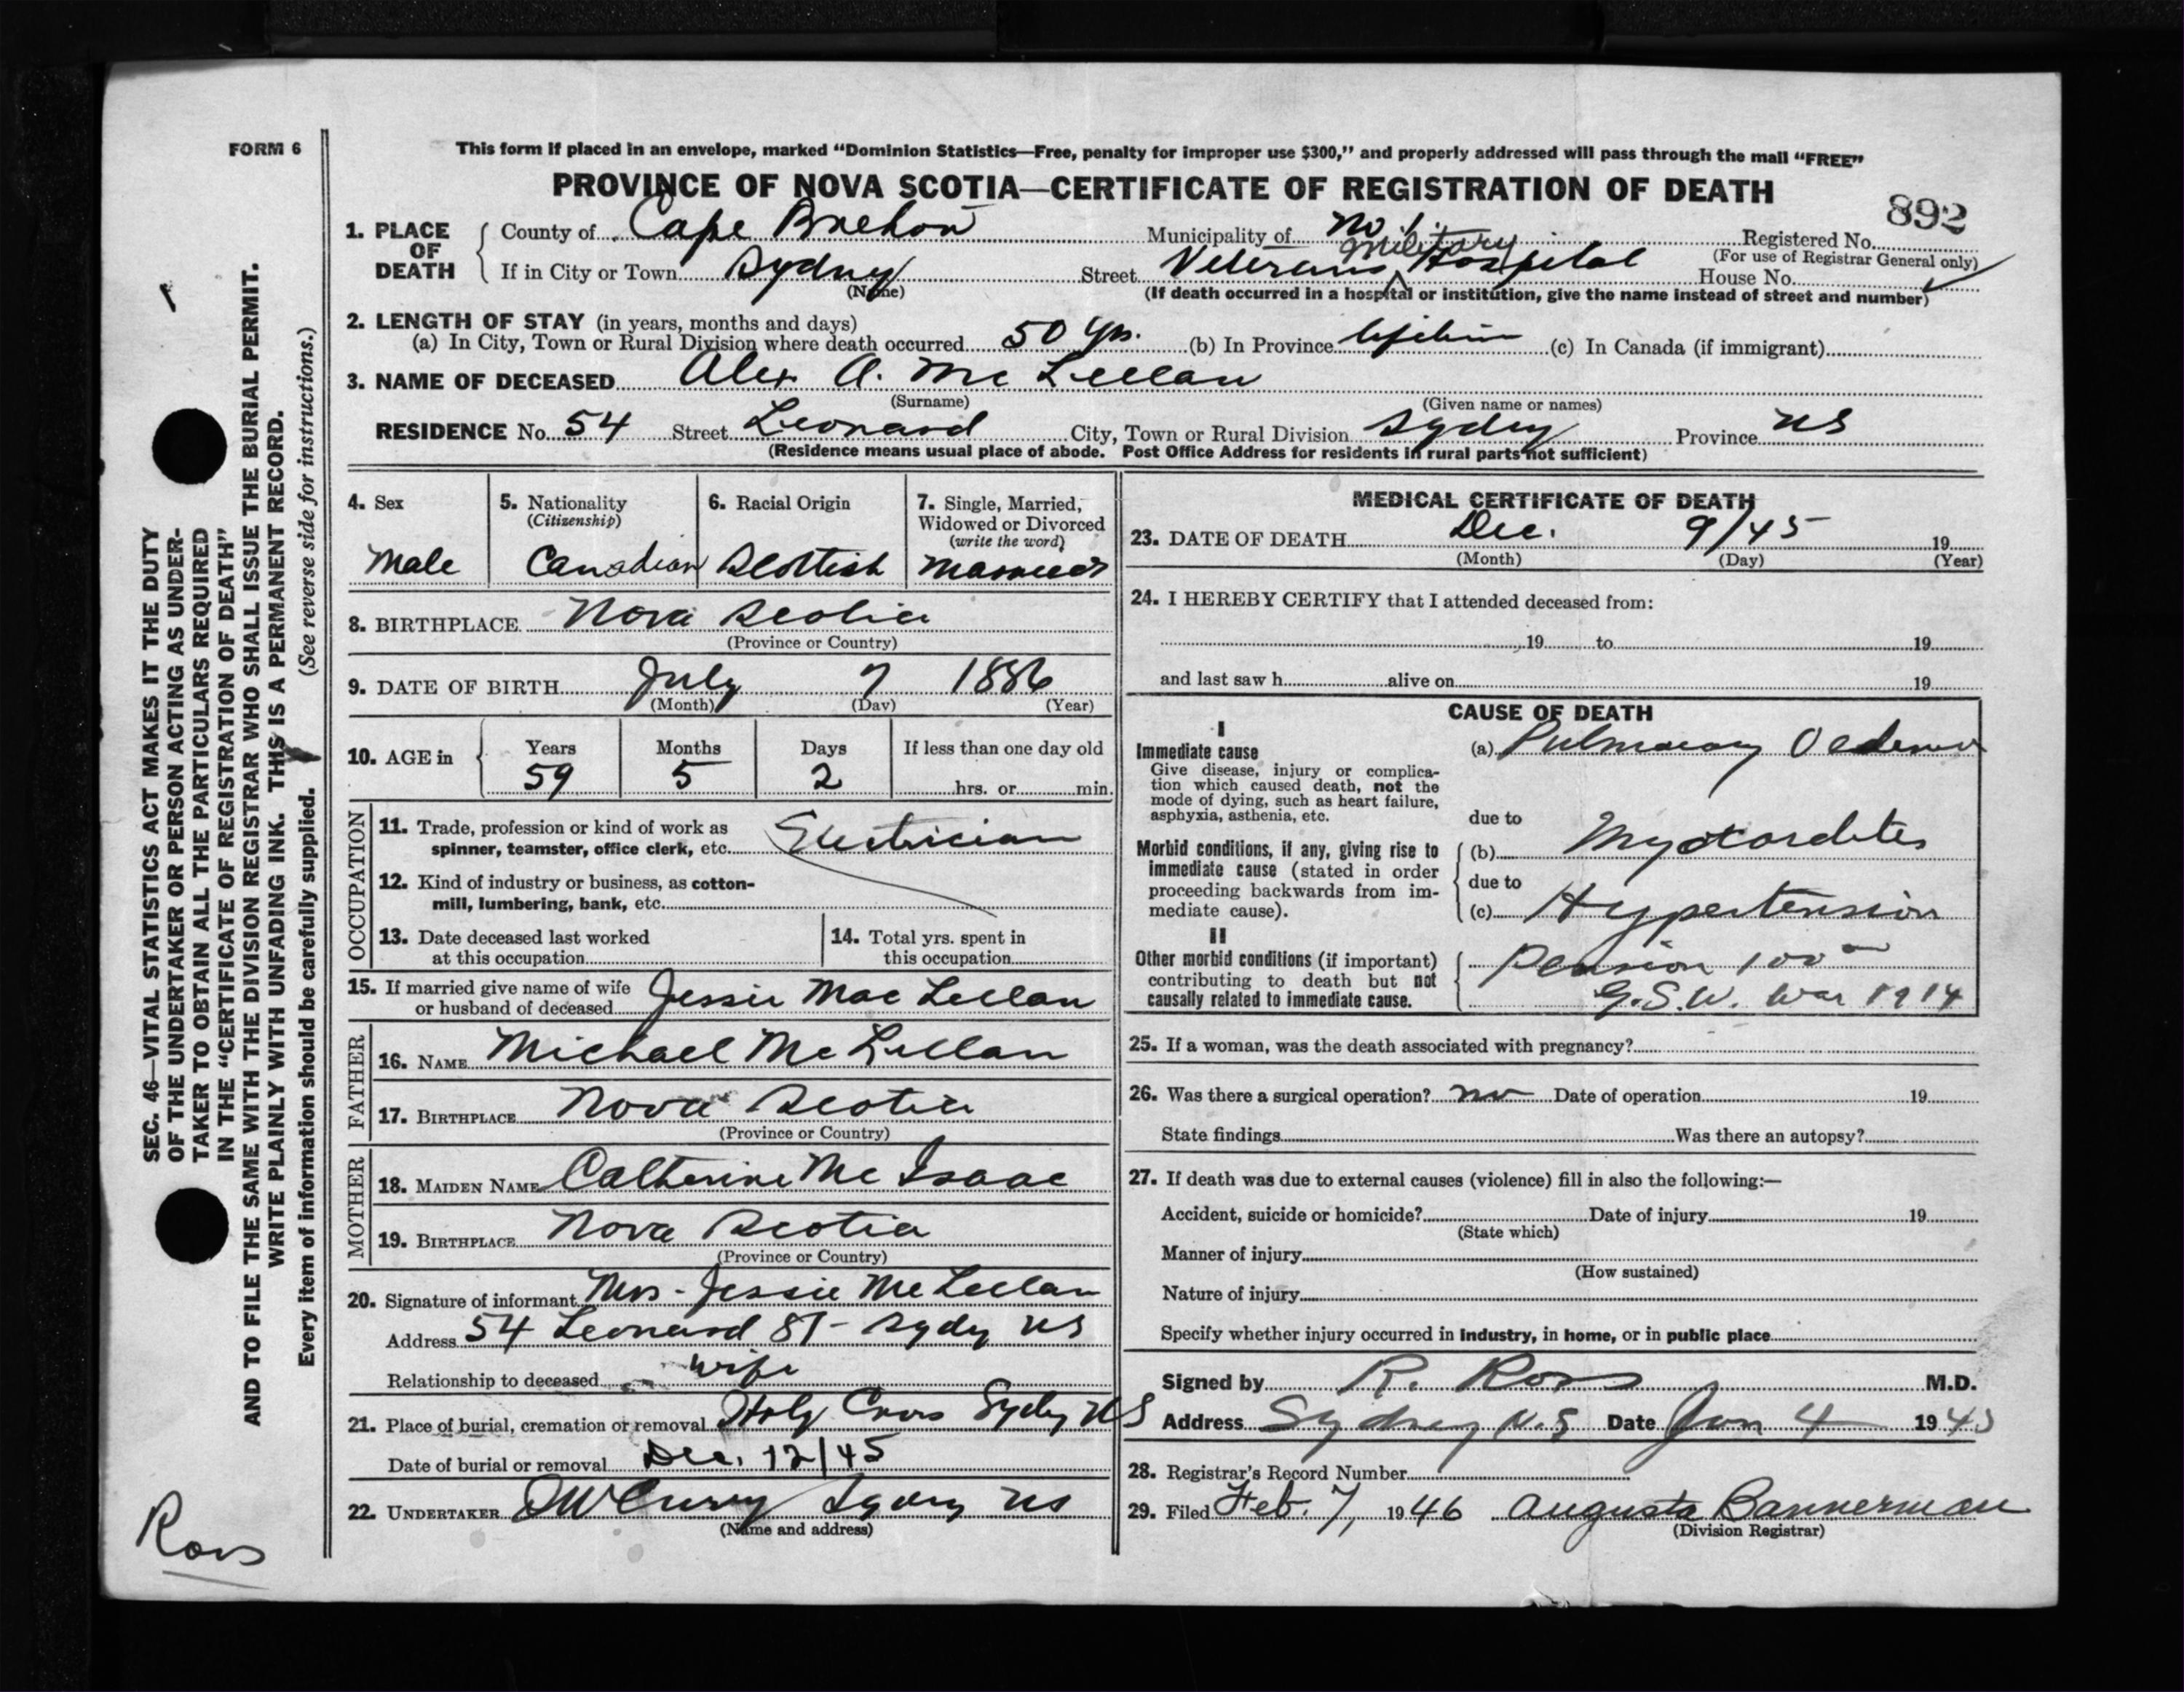 FORM 6
This form if placed in an envelope, marked "Dominion Statistics—Free, penalty for improper use $300," and properly addressed will pass through the mail "FREE"
PROVINCE OF NOVA SCOTIA—CERTIFICATE OF REGISTRATION OF DEATH
892
1. PLACE OF DEATH
County of Cape Breton Municipality of No 1. Registered No.
(For use of Registrar General only)
If in City or Town Sydney Street Veterans Military Hospital House No.
(Name) (If death occurred in a hospital or institution, give the name instead of street and number)
2. LENGTH OF STAY (in years, months and days)
(a) In City, Town or Rural Division where death occurred 50 yrs. (b) In Province lifetime (c) In Canada (if immigrant)
3. NAME OF DECEASED Alex A. McLellan
(Surname) (Given name or names)
RESIDENCE No. 54 Street Leonard City, Town or Rural Division Sydney Province NS
(Residence means usual place of abode. Post Office Address for residents in rural parts not sufficient)
4. Sex
Male
5. Nationality
(Citizenship)
Canadian
6. Racial Origin
Scottish
7. Single, Married,
Widowed or Divorced
(write the word)
Married
8. BIRTHPLACE Nova Scotia
(Province or Country)
9. DATE OF BIRTH July 7 1886
(Month) (Day) (Year)
10. AGE in Years Months Days If less than one day old
59 5 2 hrs. or min.
OCCUPATION
11. Trade, profession or kind of work as
spinner, teamster, office clerk, etc. Electrician
12. Kind of industry or business, as cotton-
mill, lumbering, bank, etc.
13. Date deceased last worked
at this occupation
14. Total yrs. spent in
this occupation
15. If married give name of wife
or husband of deceased Jessie MacLellan
FATHER
16. NAME Michael McLellan
17. BIRTHPLACE Nova Scotia
(Province or Country)
MOTHER
18. MAIDEN NAME Catherine McIsaac
19. BIRTHPLACE Nova Scotia
(Province or Country)
20. Signature of informant Mrs - Jessie McLellan
Address 54 Leonard St - Sydy NS
Relationship to deceased wife
21. Place of burial, cremation or removal Holy Cross Sydney NS
Date of burial or removal Dec. 12/45
22. UNDERTAKER Sydney NS
(Name and address)
MEDICAL CERTIFICATE OF DEATH
23. DATE OF DEATH Dec. 9/45 19
(Month) (Day) (Year)
24. I HEREBY CERTIFY that I attended deceased from:
19 to 19
and last saw h alive on 19
CAUSE OF DEATH
I
Immediate cause
Give disease, injury or complica-
tion which caused death, not the
mode of dying, such as heart failure,
asphyxia, asthenia, etc.
(a) Pulmonary Oedema
due to
Morbid conditions, if any, giving rise to
immediate cause (stated in order
proceeding backwards from im-
mediate cause).
(b) Myocarditis
due to
(c) Hypertension
II
Other morbid conditions (if important)
contributing to death but not
causally related to immediate cause.
Pension 100
G.S.W. War 1914
25. If a woman, was the death associated with pregnancy?
26. Was there a surgical operation? no Date of operation 19
State findings Was there an autopsy?
27. If death was due to external causes (violence) fill in also the following:—
Accident, suicide or homicide? Date of injury 19
(State which)
Manner of injury
(How sustained)
Nature of injury
Specify whether injury occurred in industry, in home, or in public place
Signed by R. Ross M.D.
Address Sydney N.S Date Jan 4 1945
28. Registrar's Record Number
29. Filed Feb. 7, 1946 Augusta Bannerman
(Division Registrar)
SEC. 46—VITAL STATISTICS ACT MAKES IT THE DUTY
OF THE UNDERTAKER OR PERSON ACTING AS UNDER-
TAKER TO OBTAIN ALL THE PARTICULARS REQUIRED
IN THE "CERTIFICATE OF REGISTRATION OF DEATH"
AND TO FILE THE SAME WITH THE DIVISION REGISTRAR WHO SHALL ISSUE THE BURIAL PERMIT.
WRITE PLAINLY WITH UNFADING INK. THIS IS A PERMANENT RECORD.
Every item of information should be carefully supplied. (See reverse side for instructions.)
Ross